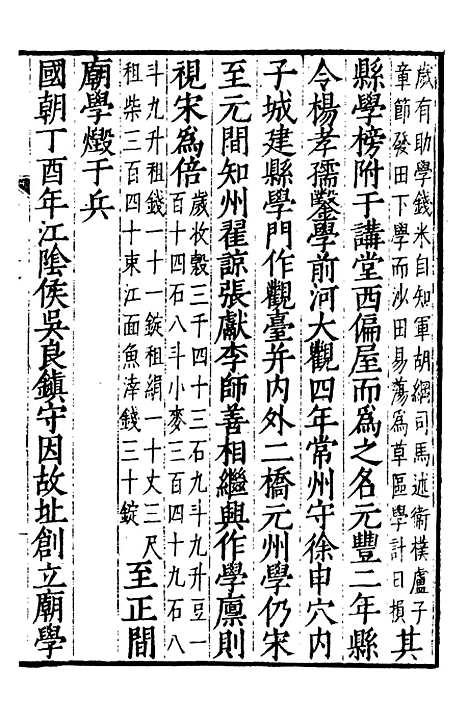 歲有助學錢米自知軍胡綱司馬述衛樸盧子
章節發田下學而沙田易蕩為草區學計日損其
縣學榜附于講堂西偏屋而爲之名元豐二年縣
令楊孝孺鑿學前河大觀四年常州守徐申穴内
子城建縣學門作觀臺并内外二橋元州學仍宋
至元間知州翟諒張獻李師善相繼興作學廩則
視宋爲倍歲收穀三千四十三石九斗九升豆一
百十四石八斗小麥三百四十九石八
斗九升租錢一十一錠租絹一十丈三尺
租柴三百四十束江面魚涬錢三十錠至正間
廟學燬于兵
國朝丁酉年江陰侯吳良鎮守因故址創立廟學